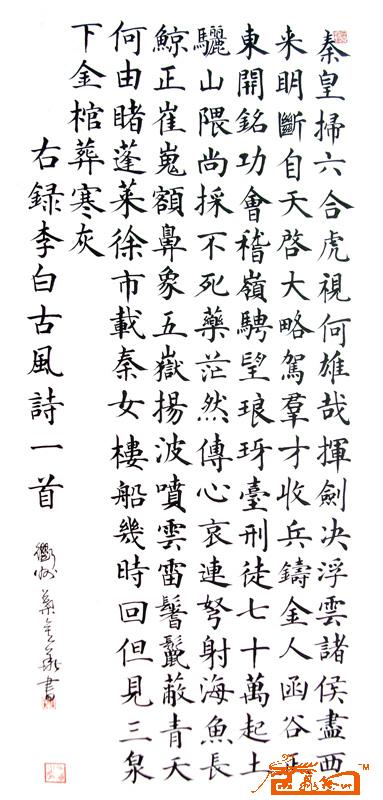 秦皇掃六合虎視何雄哉揮劍決浮雲諸侯盡西
来明斷自天啓大略駕羣才收兵鑄金人函谷正
東開銘功會稽嶺騁望琅玡臺刑徒七十萬起土
驪山隈尚採不死藥茫然傳心哀連弩射海魚長
鯨正崔嵬額鼻象五嶽揚波噴雲雷鬐鬣蔽青天
何由睹蓬莱徐市載秦女樓船幾時回但見三泉
下金棺葬寒灰
右録李白古風詩一首
書